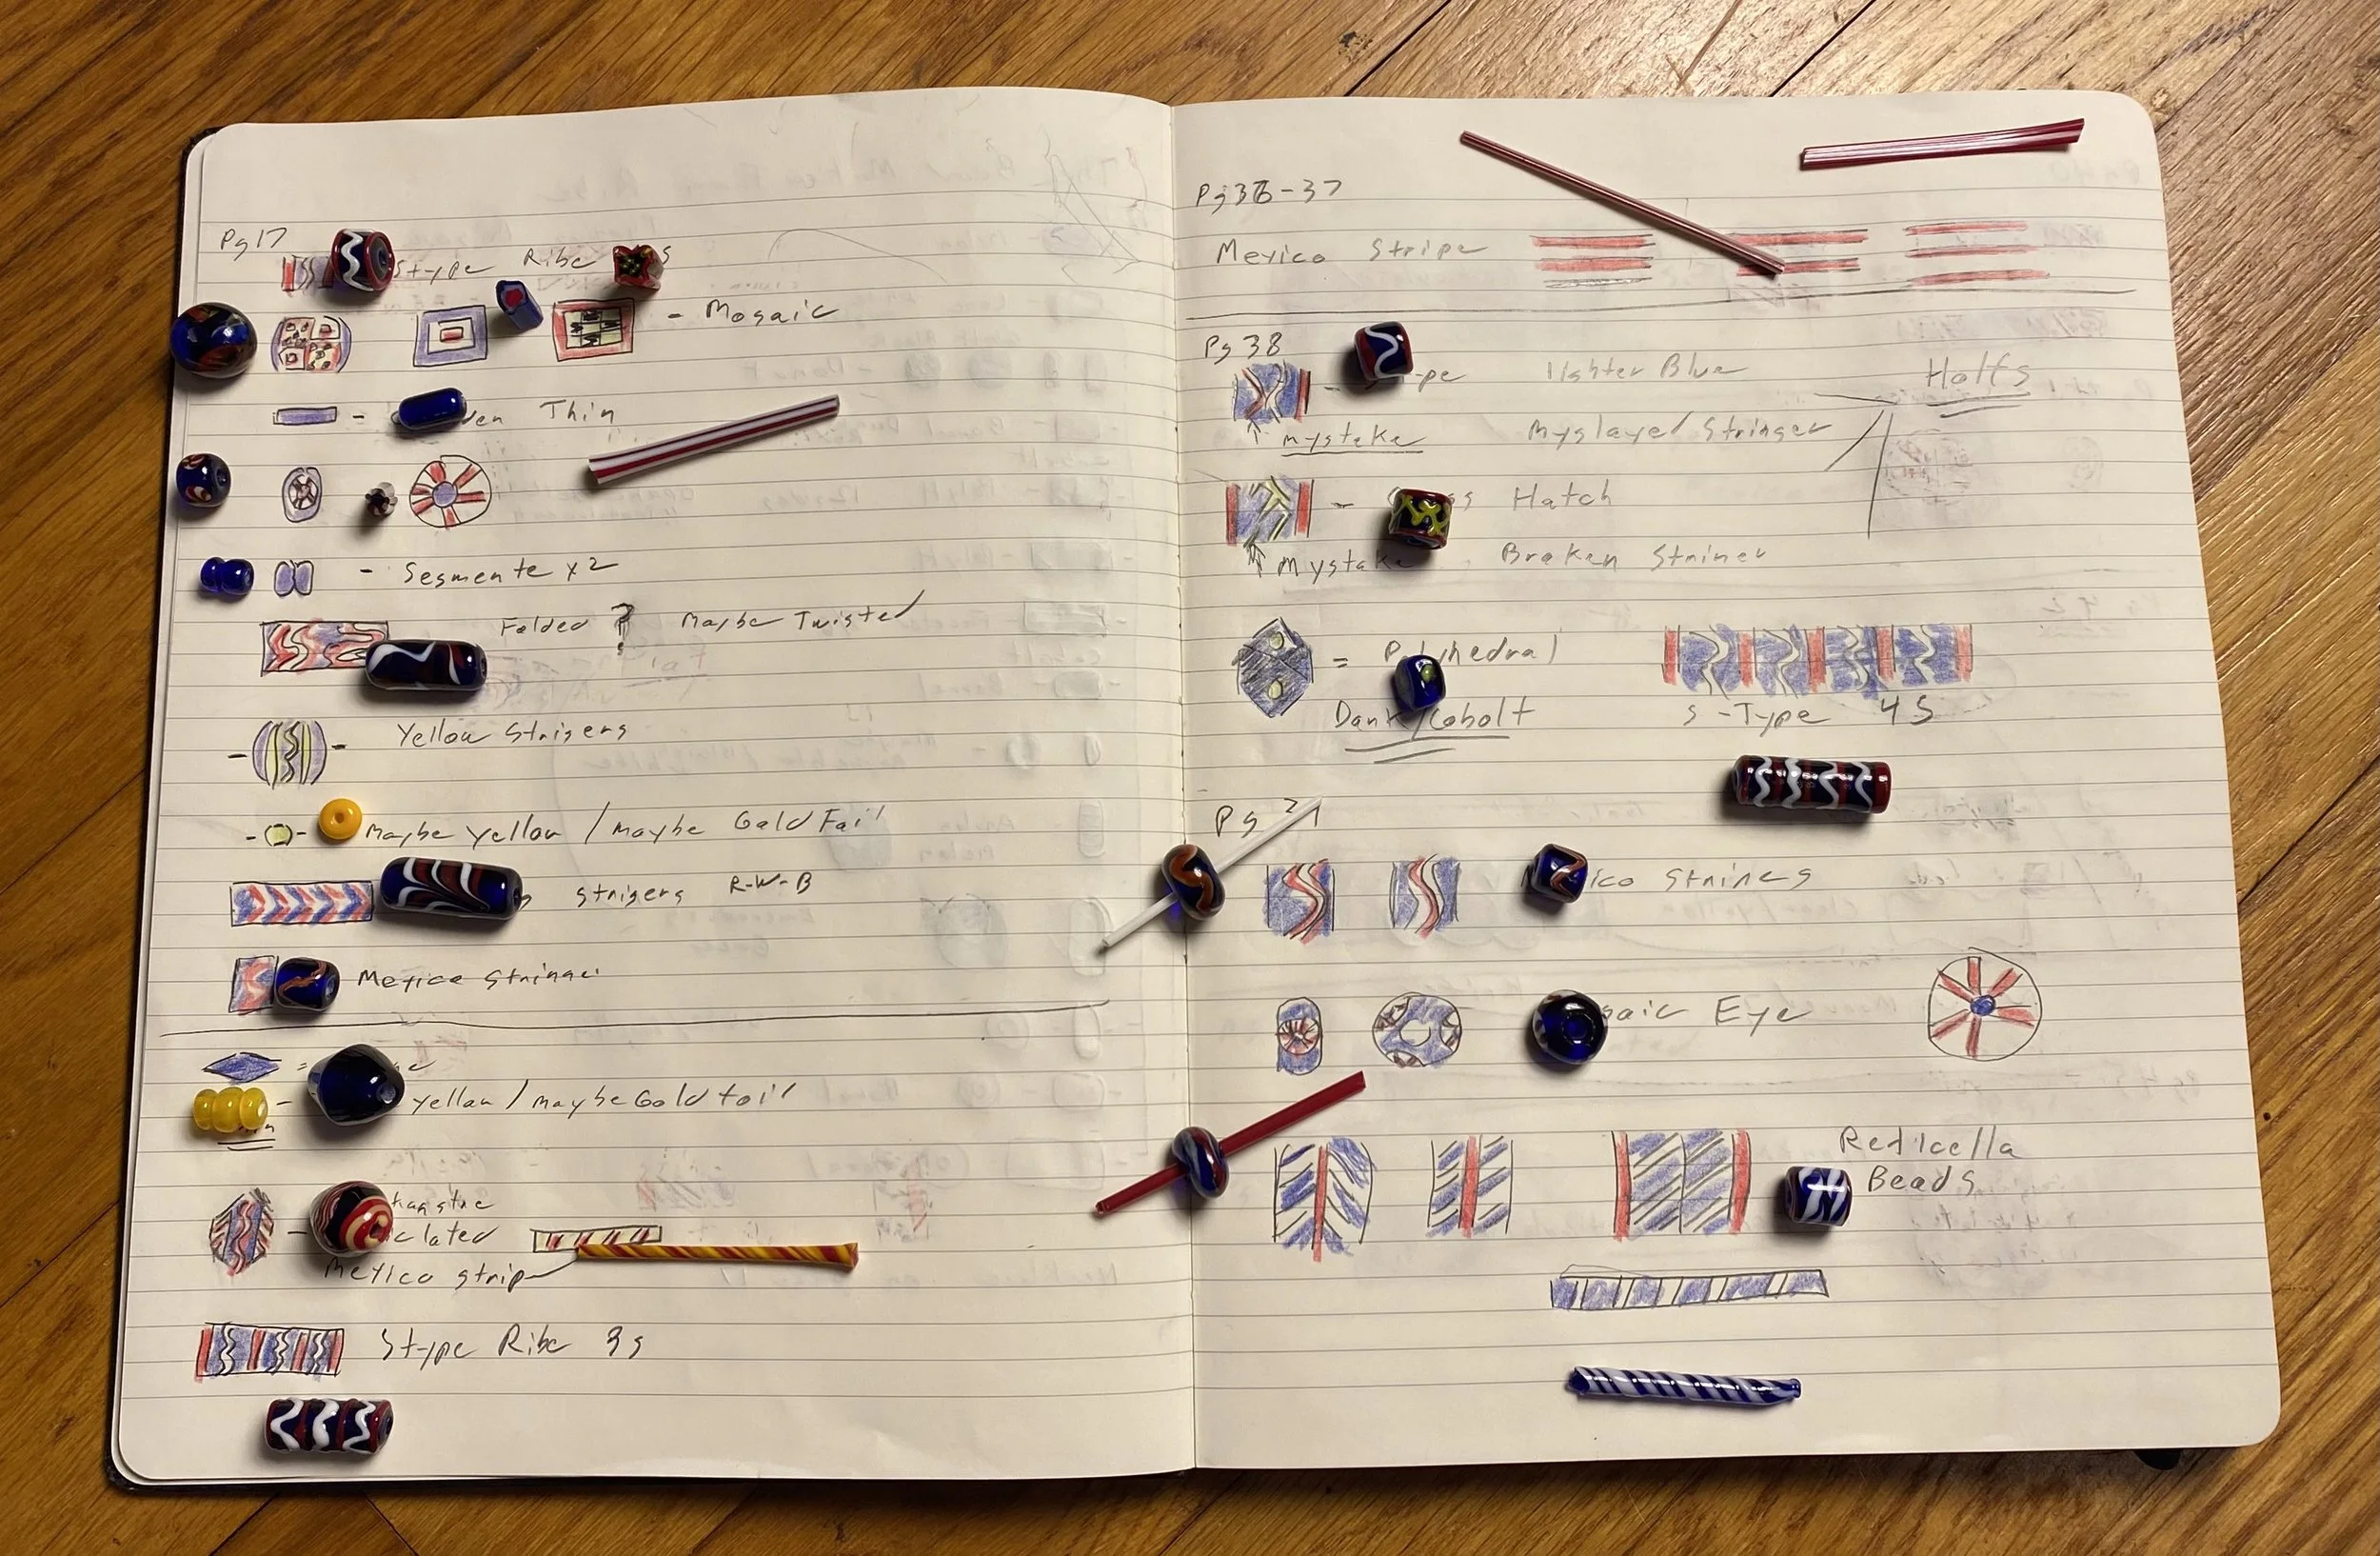 Pg 17
Stype Ribe s
- Mosaic
- en Thin
- Segmente x2
Folded ? Maybe Twisted
- - Yellow Strigers
- - Maybe yellow / maybe Gold Foil
strigers R-W-B
Mexico Stringer
=
- yellow / maybe Gold foil
-
clated
Mexico strip
Stype Ribe 3s
Pg 36-37
Mexico Stripe
Pg 38
- pe lighter Blue Halfs
↑ mystake Myslayed Stringer
- ss Hatch
↑ Mystake Broken Striner
= Polyhedral
Dark/Cobolt S-Type 4S
Pg 21
ico Strines
saic Eye
Redicella
Beads